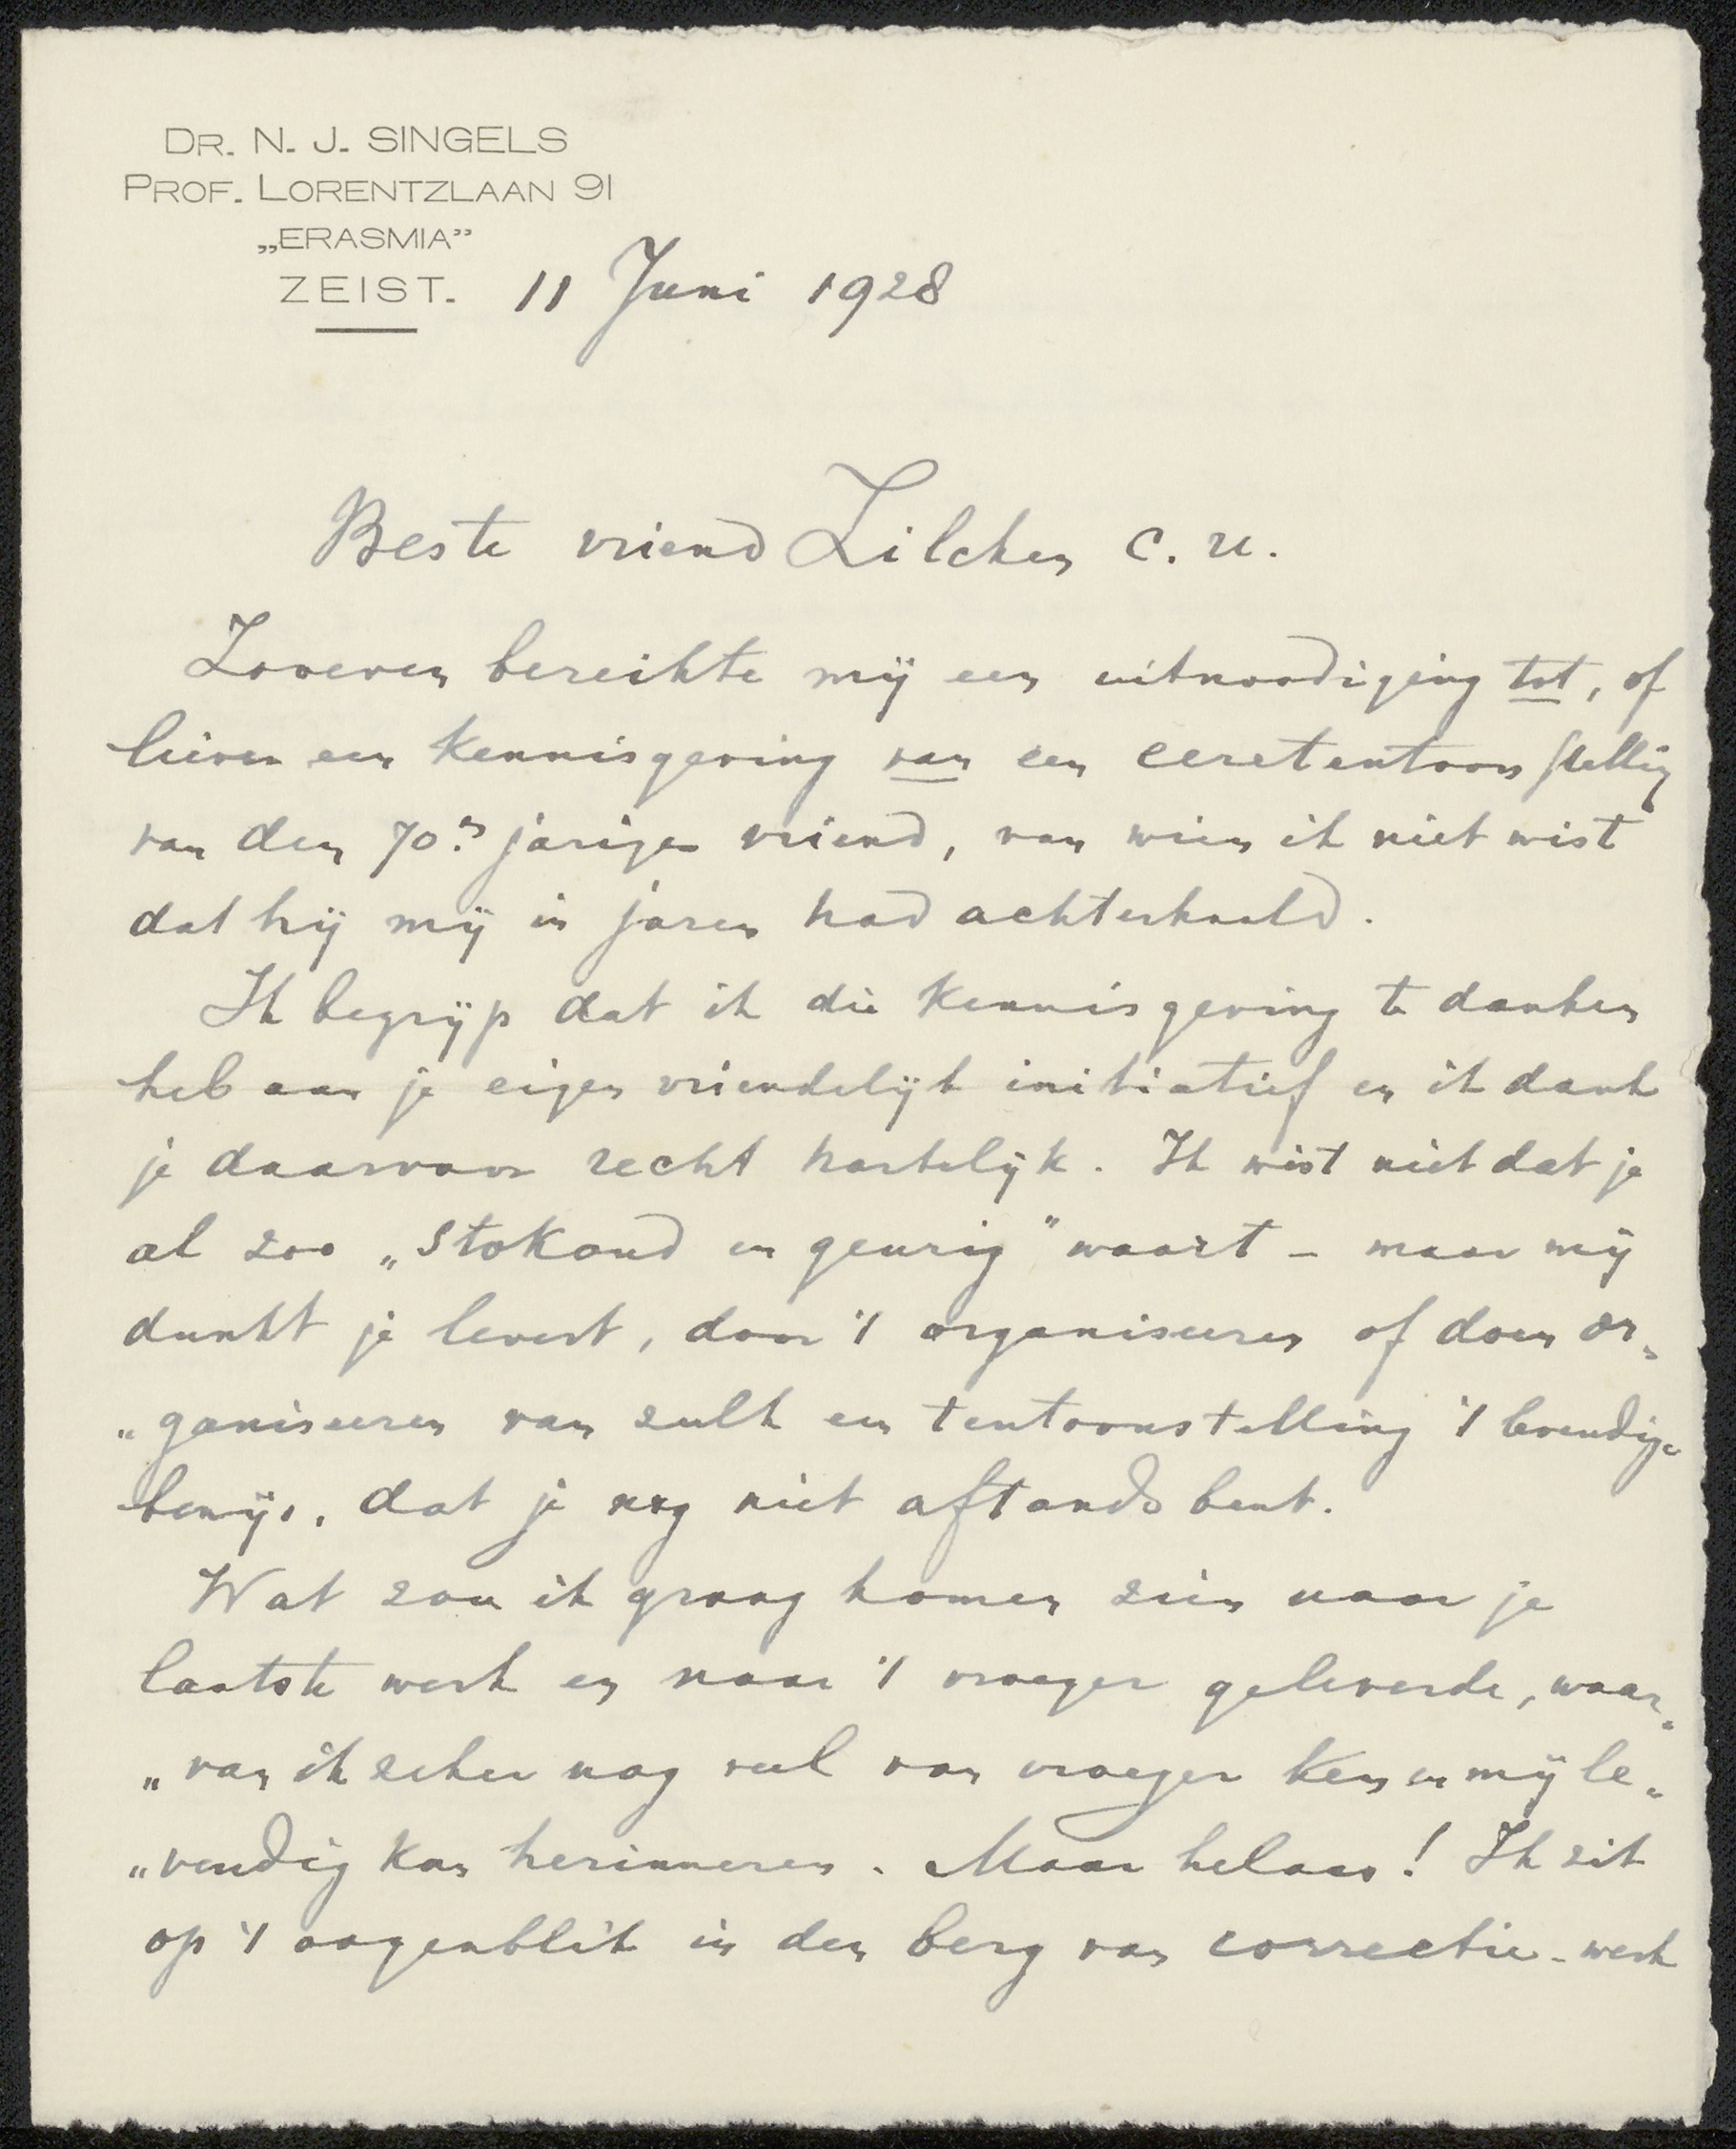 DR. N. J. SINGELS
PROF. LORENTZLAAN 91
„ERASMIA”
ZEIST. 11 Juni 1928
Beste vriend Zilcken c. u.
Zooeven bereikte mij een uitnoodiging tot, of
liever een kennisgeving van een eeretentoonstelling
van den 70-jarigen vriend, van wien ik niet wist
dat hij mij in jaren had achterhaald.
Ik begrijp dat ik die kennisgeving te danken
heb aan je eigen vriendelijk initiatief en ik dank
je daarvoor recht hartelijk. Ik wist niet dat je
al zoo „stokoud en geurig” waart – maar mij
dunkt je levert, door 't organiseeren of doen or„
„ganiseeren van zulk een tentoonstelling 't levendige
bewijs, dat je nog niet aftands bent.
Wat zou ik graag komen zien naar je
laatste werk en naar 't vroeger geleverde, waar„
„van ik zeker nog veel van vroeger ken en mij le„
„vendig kan herinneren. Maar helaas! Ik zit
op 't oogenblik in den berg van correctie-werk